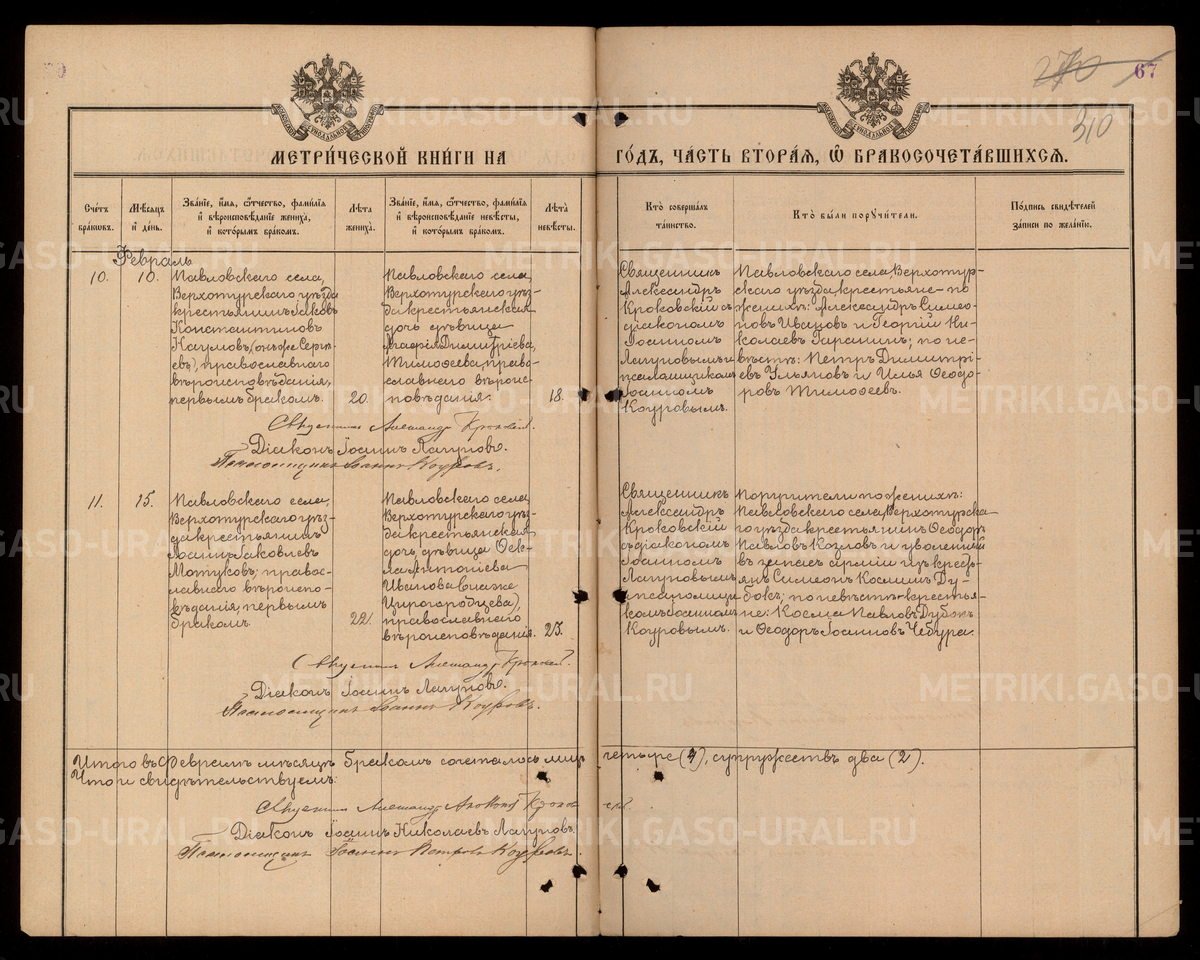 67
310
МЕТРИ́ЧЕСКОЙ КНИ́ГИ НА ГО́ДЪ, ЧА́СТЬ ВТОРА́Я, Ѡ БРАКОСОЧЕТА́ВШИХСЯ.
Сче́тъ бра́ковъ.
Мѣ́сяцъ и день.
Зва́нїе, и́мя, ѻ́тчество, фами́лїя и вѣроисповѣ́данїе жениха̀, и кото́рымъ бра́комъ.
Лѣ́та жениха̀.
Зва́нїе, и́мя, ѻ́тчество, фами́лїя и вѣроисповѣ́данїе невѣ́сты, и кото́рымъ бра́комъ.
Лѣ́та невѣ́сты.
Кто̀ соверша́лъ та́инство.
Кто̀ бы́ли поручи́тели.
По́дпись свидѣ́телей за́писи по жела́нїю.
Февраль
10.
10.
Павловскаго села,
Верхотурскаго уѣзда
крестьянинъ Іаковъ
Константиновъ
Наумовъ, (онъ же Серге-
евъ), православнаго
вѣроисповѣданія,
первымъ бракомъ.
20.
Павловскаго села,
Верхотурскаго уѣз-
да крестьянская
дочь дѣвица
Агафія Димитріева,
Тимофеева, право-
славнаго вѣроис-
повѣданія.
18.
Священникъ
Александръ
Кроковскій съ
діакономъ
Іоанномъ
Лагуновымъ и
псаломщикомъ
Іоанномъ
Коуровымъ.
Павловскаго села, Верхотур-
скаго уѣзда, крестьяне - по
женихѣ: Александръ Симео-
новъ Ивановъ и Георгій Ни-
колаевъ Гарашинъ; по не-
вѣстѣ: Петръ Димитрі-
евъ Ульяновъ и Илья Ѳеодо-
ровъ Тимофеевъ.
Священникъ Александръ Кроковскій.
Діаконъ Іоаннъ Лагуновъ.
Псаломщикъ Іоаннъ Коуровъ.
11.
15.
Павловскаго села,
Верхотурскаго уѣз-
да крестьянинъ
Іоаннъ Іаковлевъ
Мотуковъ; право-
славнаго вѣроиспо-
вѣданія, первымъ
бракомъ.
22.
Павловскаго села
Верхотурскаго уѣз-
да крестьянская
дочь, дѣвица Ѳек-
ла Антоніева
Иванова (она же
Цирогородцева),
православнаго
вѣроисповѣданія.
23.
Священникъ
Александръ
Кроковскій
съ діакономъ
Іоанномъ
Лагуновымъ
и псаломщи-
комъ Іоанномъ
Коуровымъ.
Поручители по женихѣ:
Павловскаго села Верхотурска-
го уѣзда крестьянинъ Ѳеодоръ
Павловъ Козловъ и уволенный
въ запасъ арміи изъ кресть-
янъ Симеонъ Космины Ду-
бокъ; по невѣстѣ - крестья-
не: Косма Павловъ Дубокъ
и Ѳеодоръ Іоанновъ Чебура.
Священникъ Александръ Кроковскій.
Діаконъ Іоаннъ Лагуновъ.
Псаломщикъ Іоаннъ Коуровъ.
Итого въ Февралѣ мѣсяцѣ бракомъ сочеталось лицъ четыре (4), супружествъ два (2).
Что и свидѣтельствуемъ:
Священникъ Александръ Кроковскій.
Діаконъ Іоаннъ Николаевъ Лагуновъ.
Псаломщикъ Іоаннъ Петровъ Коуровъ.
METRIKI.GASO-URAL.RU